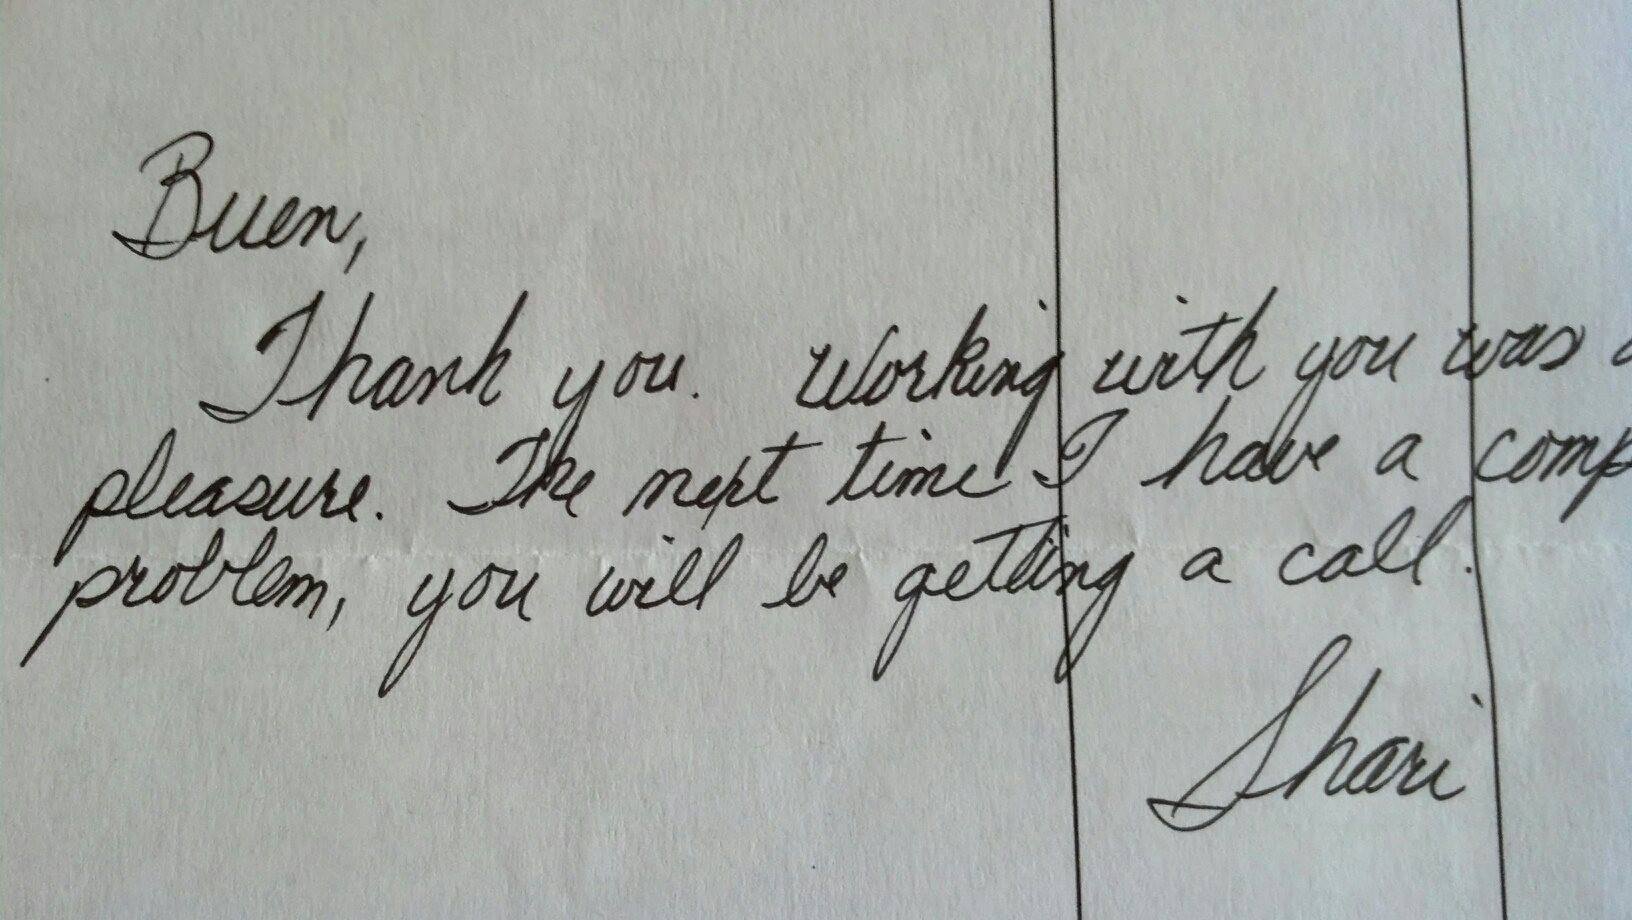 Buen,
Thank you. Working with you was a
pleasure. The next time I have a comp
problem, you will be getting a call.
Shari